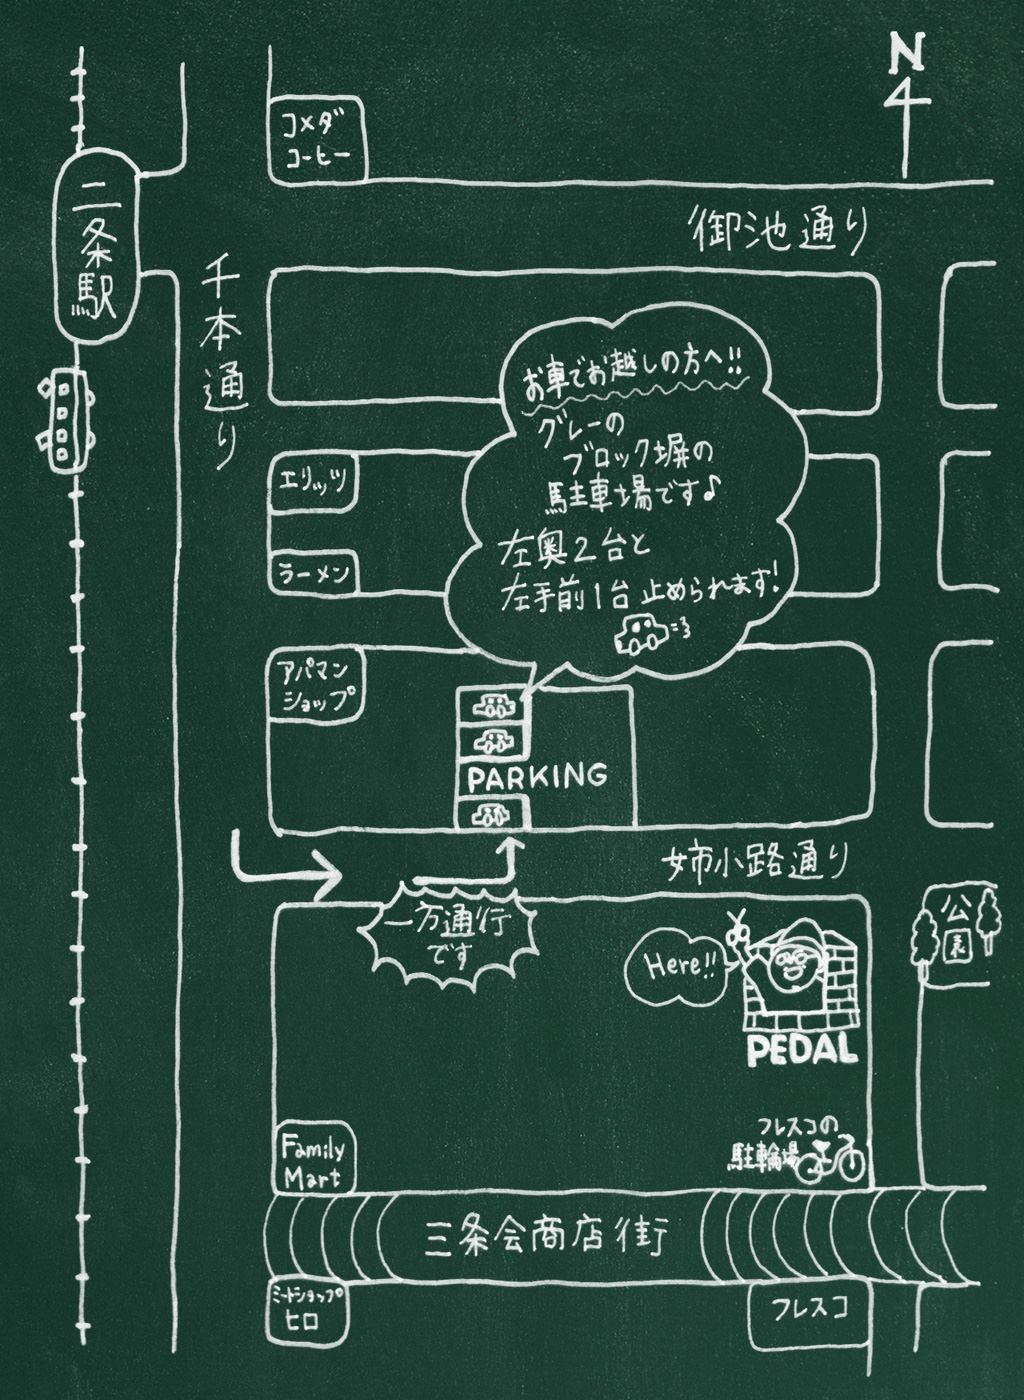 N
コメダ
コーヒー
御池通り
二条駅
千本通り
お車でお越しの方へ!!
グレーの
ブロック塀の
駐車場です♪
左奥2台と
左手前1台 止められます!
エリッツ
ラーメン
アパマン
ショップ
PARKING
姉小路通り
一方通行
です
公
園
Here!!
PEDAL
フレスコの
駐輪場
Family
Mart
三条会商店街
ミートショップ
ヒロ
フレスコ